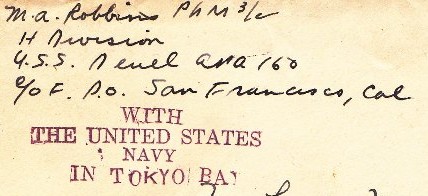 M.A. Robbins PhM 3/c
H Division
U.S.S. Deuel APA 160
c/o F.P.O. San Francisco, Cal
WITH
THE UNITED STATES
NAVY
IN TOKYO BAY